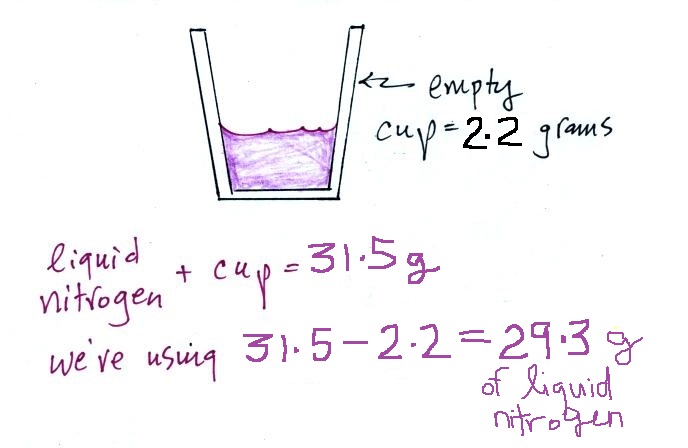 empty
cup = 2.2 grams
liquid
nitrogen + cup = 31.5 g
we've using 31.5 - 2.2 = 29.3 g
of liquid
nitrogen